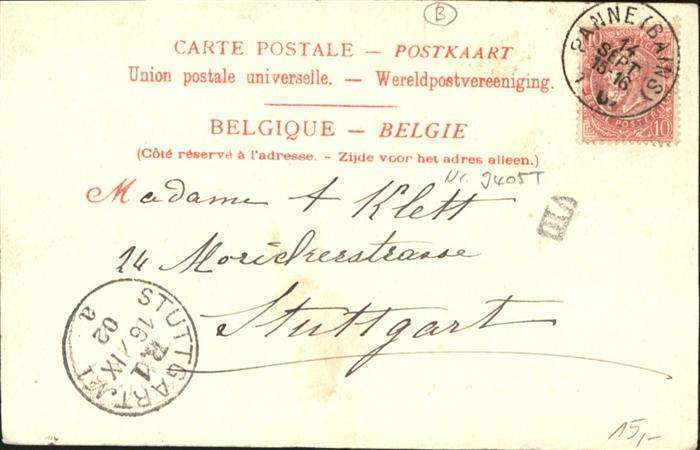 B
CARTE POSTALE — POSTKAART
Union postale universelle. — Wereldpostvereeniging.
BELGIQUE — BELGIE
(Côté réservé à l'adresse. - Zijde voor het adres alleen.)
PANNE (BAINS)
14
SEPT
15-16
10
Nr. J405T
Madame A Klett
24 Moricherstrasse
Stuttgart
STUTTGART No 1
16/IX
02
a
15,-